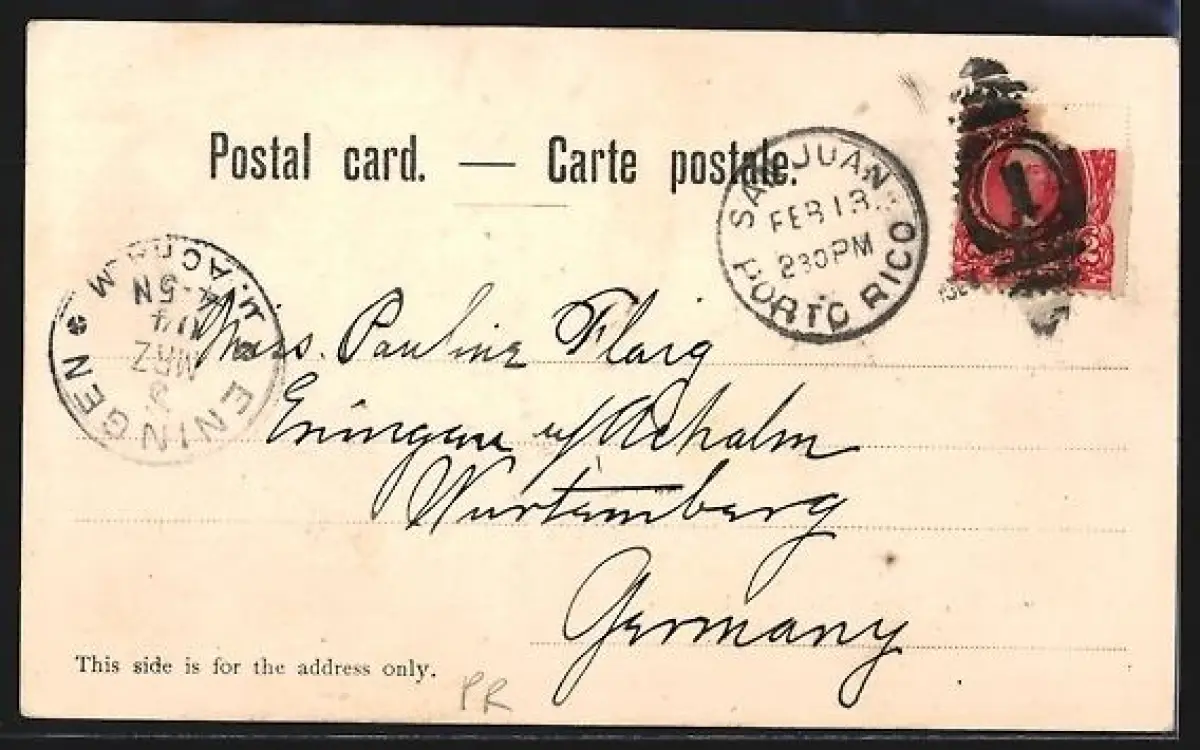 Postal card. — Carte postale.
SAN JUAN
FEB 13
2 30 PM
PORTO RICO
1
2
ENINGEN
U. ACHALM
MRZ
4-5N
Miss. Pauline Flaig
Eningen u/Achalm
Wurtemberg
Germany
This side is for the address only.
PR